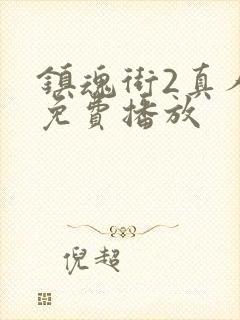 鎮魂街2真人
免費播放
倪超